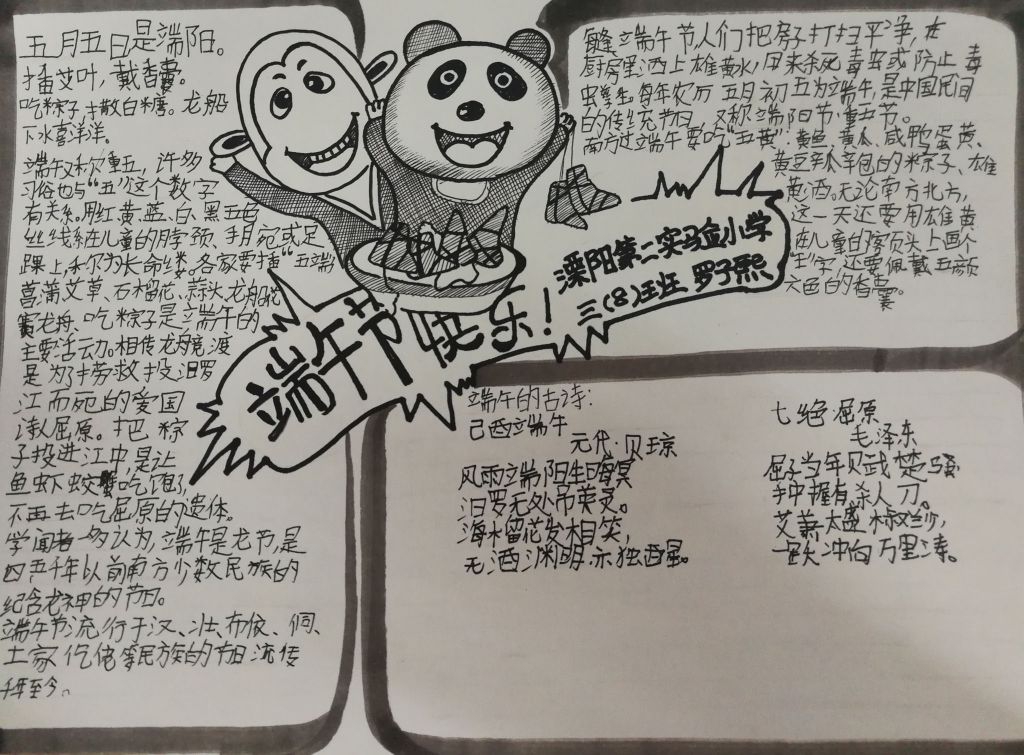 五月五日是端阳。
插艾叶，戴香囊。
吃粽子，撒白糖。龙船
下水喜洋洋。
端午又称重五，许多
习俗也与“五”这个数字
有关系。用红、黄、蓝、白、黑五色
丝线系在儿童的脖颈、手腕或足
踝上，称为长命缕。各家要插“五端
菖蒲艾草、石榴花、蒜头、龙船花
赛龙舟、吃粽子是立端午的
主要活动。相传龙舟竞渡
是为了捞救投汨罗
江而死的爱国
诗人屈原。把粽
子投进江中，是让
鱼虾蛟蟹吃饱了，
不再去吃屈原的遗体。
学闻者多认为，端午是龙节，是
四五千年以前南方少数民族的
纪念龙神的节日。
端午节流行于汉、壮、布依、侗、
土家、仡佬等民族的节日流传
千年至今。
每逢端午节人们把房子打扫干净，在
厨房里洒上雄黄水，用来杀死毒虫或防止毒
虫孳生。每年农历五月初五为端午，是中国民间
的传统节日，又称端阳节、重五节。
南方过端午要吃“五黄”：黄鱼、黄瓜、咸鸭蛋黄、
黄豆瓣包的粽子、雄
黄酒。无论南方北方，
这一天还要用雄黄
在儿童的额头上画个
“王”字，还要佩戴五颜
六色的香囊。
端午节快乐！
溧阳第二实验小学
三（8）班 罗子熙
端午的古诗：
己酉端午
元代·贝琼
风雨端阳生晦冥
汨罗无处吊英灵。
海榴花发相笑，
无酒渊明亦独醒。
七绝·屈原
毛泽东
屈子当年赋楚骚
手中握有杀人刀。
艾萧太盛椒兰少，
一跃冲向万里涛。